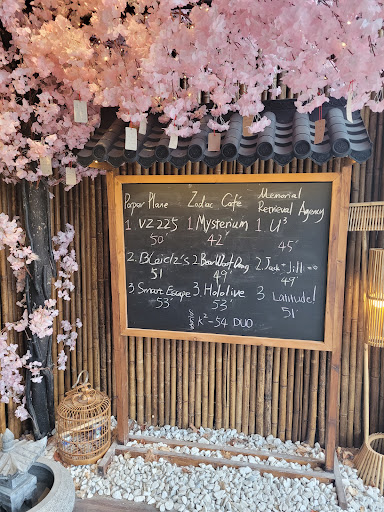 Paper Plane
1. VZ225
50'
2.
51
3. Smart Escape
53'
Zodac Cafe
1. Mysterium
42'
2.
49'
3. Hololive
53'
K²-54 DUO
Memorial
Retrieval Agency
1. U³
45'
2. Jack-Jill
49'
3 Latitude!
51'